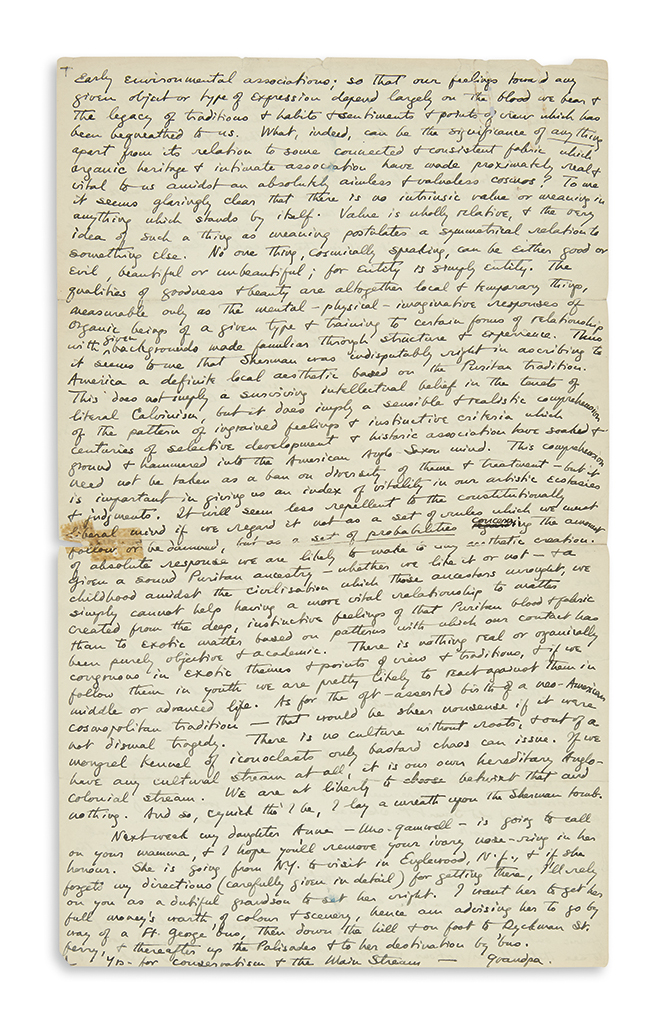 Early environmental associations; so that our feelings toward any
given object or type of expression depend largely on the blood we bear &
the legacy of traditions & habits & sentiments & points of view which has
been bequeathed to us. What, indeed, can be the significance of anything
apart from its relation to some connected & consistent fabric which
organic heritage & intimate association have made proximately real &
vital to us amidst an absolutely aimless & valueless cosmos? To me
it seems glaringly clear that there is no intrinsic value or meaning in
anything which stands by itself. Value is wholly relative, & the very
idea of such a thing as meaning postulates a symmetrical relation to
something else. No one thing, cosmically speaking, can be either good or
evil, beautiful or unbeautiful; for entity is simply entity. The
qualities of goodness & beauty are altogether local & temporary things,
measurable only as the mental-physical-imaginative responses of
organic beings of a given type & training to certain forms of relationship
with given backgrounds made familiar through structure & experience. Thus
it seems to me that Sherman was indisputably right in ascribing to
America a definite local aesthetic based on the Puritan tradition.
This does not imply a surviving intellectual belief in the tenets of
literal Calvinism, but it does imply a sensible & realistic comprehension
of the pattern of ingrained feelings & instinctive criteria which
centuries of selective development & historic association have soaked &
ground & hammered into the American Anglo-Saxon mind. This comprehension
need not be taken as a ban on diversity of theme & treatment - but it
is important in giving us an index of vitality in our artistic ecstasies
& judgments. It will seem less repellent to the constitutionally
liberal mind if we regard it not as a set of rules which we must
follow or be damned, but as a set of probabilities concerning the amount
of absolute response we are likely to make to any aesthetic creation.
given a sound Puritan ancestry - whether we like it or not - & a
childhood amidst the civilisation which those ancestors wrought, we
simply cannot help having a more vital relationship to matter
created from the deep, instinctive feelings of that Puritan blood & fabric
than to exotic matter based on patterns with which our contact has
been purely objective & academic. There is nothing real or organically
congruous in exotic themes & points of view & traditions, & if we
follow them in youth we are pretty likely to react against them in
middle or advanced life. As for the oft-asserted birth of a neo-American
cosmopolitan tradition — that would be sheer nonsense if it were
not dismal tragedy. There is no culture without roots, & out of a
mongrel kennel of iconoclasts only bastard chaos can issue. If we
have any cultural stream at all, it is our own hereditary Anglo-
colonial stream. We are at liberty to choose betwixt that and
nothing. And so, cynick tho' I be, I lay a wreath upon the Sherman tomb.
Next week my daughter Anne - Mrs. Gamwell - is going to call
on your mamma, & I hope you'll remove your ivory nose-ring in her
honour. She is going from N.Y. to visit in Englewood, N.J., & if she
forgets my directions (carefully given in detail) for getting there, I'll rely
on you as a dutiful grandson to set her right. I want her to get her
full money's worth of colour & scenery, hence am advising her to go by
way of a Ft. George 'bus, then down the hill & on foot to Dyckman St.
ferry, & thereafter up the Palisades & to her destination by 'bus.
Yrs - for conservatism & the Main Stream — Grandpa.